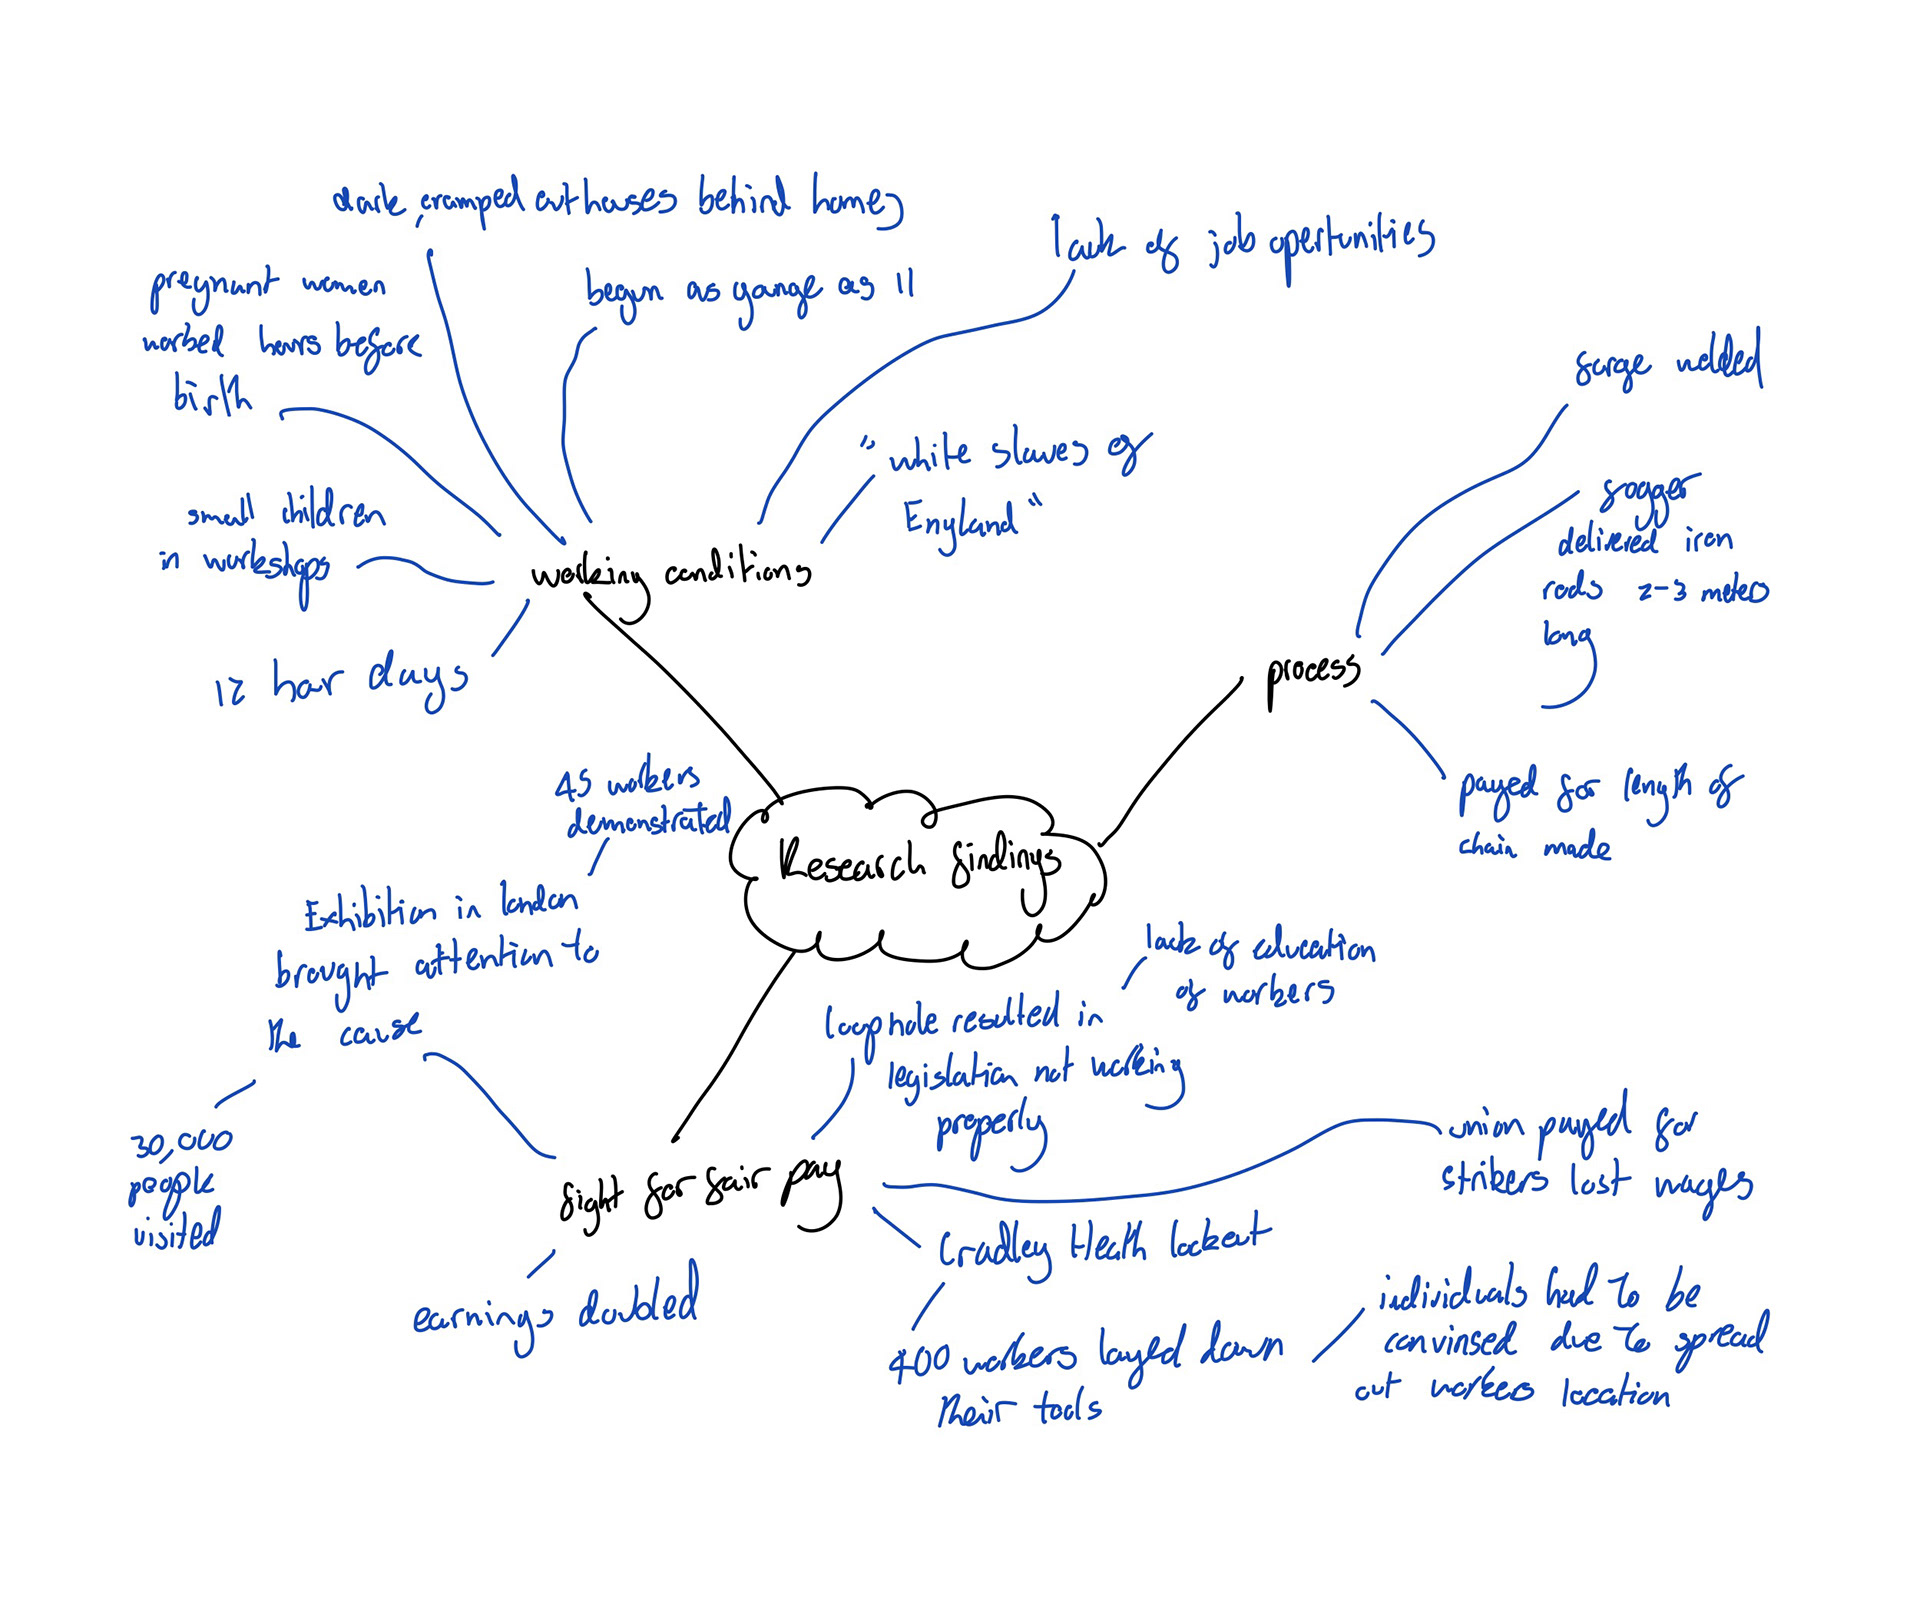 dark, cramped outhouses behind homes
pregnant women
worked hours before
birth
begun as yonge as 11
lack of job opertunities
"white slaves of
England"
small children
in workshops
working conditions
12 hour days
forge welded
fogger
delivered iron
rods 2-3 meters
long
process
payed for length of
chain made
45 workers
demonstrated
Research findings
Exhibition in london
brought attention to
the cause
30,000
people
visited
lack of education
of workers
loophole resulted in
legislation not working
properly
fight for fair pay
union payed for
strikers lost wages
Cradley Heath lockout
earnings doubled
400 workers layed down
their tools
individuals had to be
convinsed due to spread
out workers location